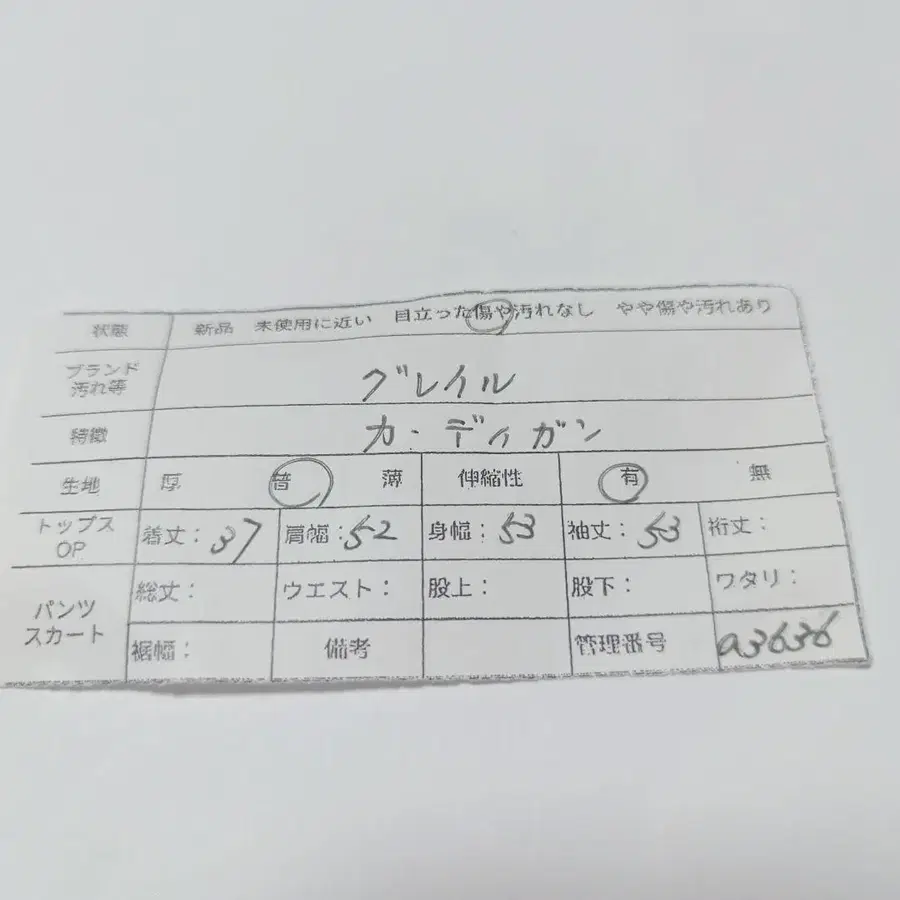 状態 新品 未使用に近い 目立った傷や汚れなし やや傷や汚れあり
ブランド グレイル
汚れ等
特徴 カーディガン
生地 厚 普 薄 伸縮性 有 無
トップス 着丈：37 肩幅：52 身幅：53 袖丈：53 裄丈：
OP
総丈： ウエスト： 股上： 股下： ワタリ：
パンツ
スカート
裾幅： 備考 管理番号 a3636